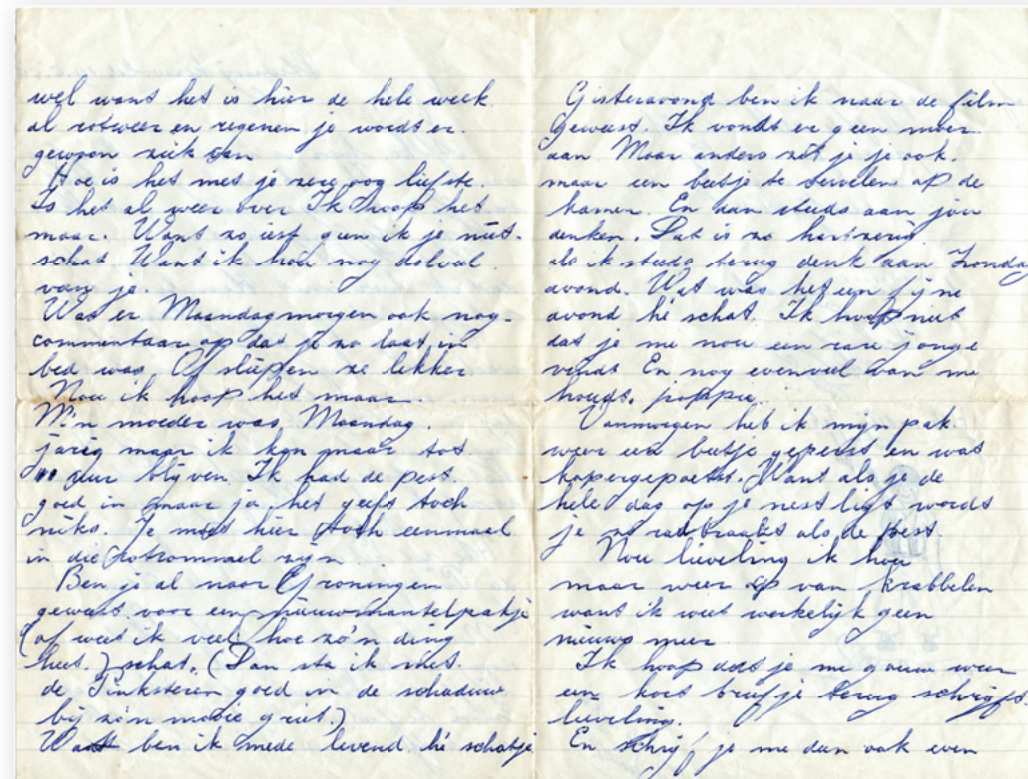 wel want het is hier de hele week
al rotweer en regenen je wordt er.
gewoon ziek van
Hoe is het met je zere oog liefste.
Is het al weer over Ik hoop het
maar. Want zo iest gun ik je niet.
schat. Want ik hou nog dolveel
van je.
Was er Maandagmorgen ook nog-
commentaar op dat je zo laat in
bed was. Of sliepen ze lekker
Nou ik hoop het maar.
M'n moeder was Maandag.
jarig maar ik kon maar tot
11 uur blijven. Ik had de pest.
goed in maar ja het geeft toch
niks. Je moet hier toch eenmaal
in die rotrommel zijn
Ben je al naar Groningen
geweest voor een nieuw mantelpakje
(of weet ik veel hoe zo'n ding
heet.) schat. (Dan sta ik met
de Pinksteren goed in de schaduw
bij zo'n mooie griet.)
Wat ben ik mede levend hé schatje
Gisteravond ben ik naar de film
Geweest. Ik vondt er geen moer
aan. Maar anders zit je je ook.
maar een beetje te vervelen op de
kamer. En dan steeds aan jou
denken. Dat is zo hartzerig
als ik steeds terug denk aan Zondag
avond. Wat was het een fijne
avond hé schat. Ik hoop niet
dat je me nou een rare jonge
vindt. En nog evenveel van me
houdt. poppie.
Vanmorgen heb ik mijn pak
weer een beetje geperst en wat
kopergepoetst. Want als je de
hele dag op je nest ligt wordt
je zo radbraakt als de pest.
Nou lieveling ik hou
maar weer op van krabbelen
want ik weet werkelijk geen
nieuws meer
Ik hoop dat je me gauw weer
een kort briefje terug schrijft
lieveling.
En schrijf je me dan ook even